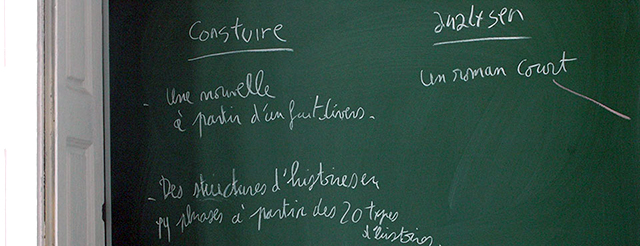 Constuire
- Une nouvelle
à partir d'un fait divers.
- Des structures d'histoires en
phrases à partir des 20 types
d'histoires.
analysen
un roman court